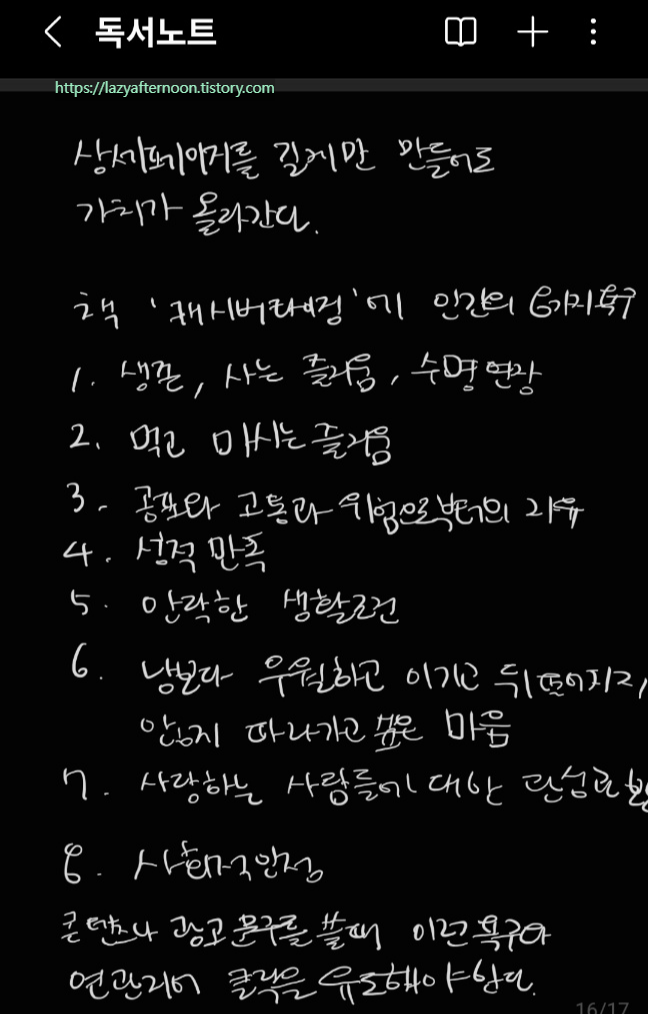 독서노트
https://lazyafternoon.tistory.com
상세페이지를 길게만 만들어도
가치가 올라간다.
책 '캐시버타이징'에 인간의 8가지 욕구
1. 생존, 사는 즐거움, 수명연장
2. 먹고 마시는 즐거움
3. 공포와 고통과 위험으로부터의 자유
4. 성적 만족
5. 안락한 생활조건
6. 남보다 우월하고 이기고 뒤떨어지지,
않고 따라가고 싶은 마음
7. 사랑하는 사람들에 대한 관심과 보
8. 사회적 인정
콘텐츠나 광고문구를 쓸때 이런 욕구와
연관지어 클릭을 유도해야한다.
16/17